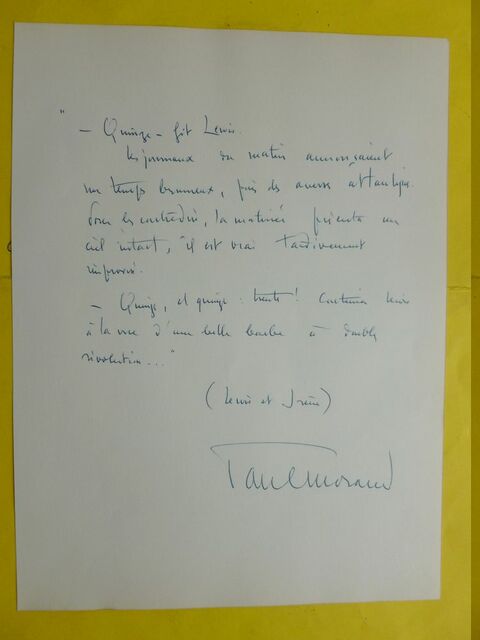 "
— Quinze — fit Lewis.
Les journaux du matin annonçaient
un temps brumeux, puis des averses atlantiques.
Pour les contredire, la matinée présenta un
ciel intact, il est vrai tardivement
improvisé.
— Quinze, et quinze : trente ! continua Lewis
à la vue d'une belle barbe à double
révolution..."
(Lewis et Irène)
Paul Morand